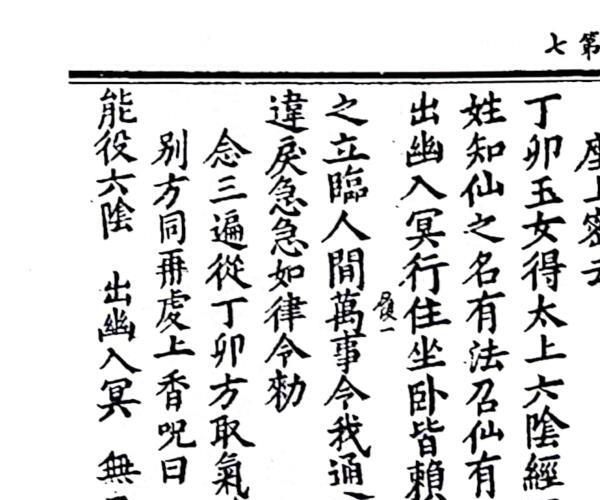 第七
座上密云
丁卯玉女得太上六陰經
姓知仙之名有法召仙有
出幽入冥行住坐卧皆賴
之立臨人間萬事令我通
違戾急急如律令勑
念三遍從丁卯方取氣
別方同再虔上香呪曰
能役六陰　出幽入冥　無